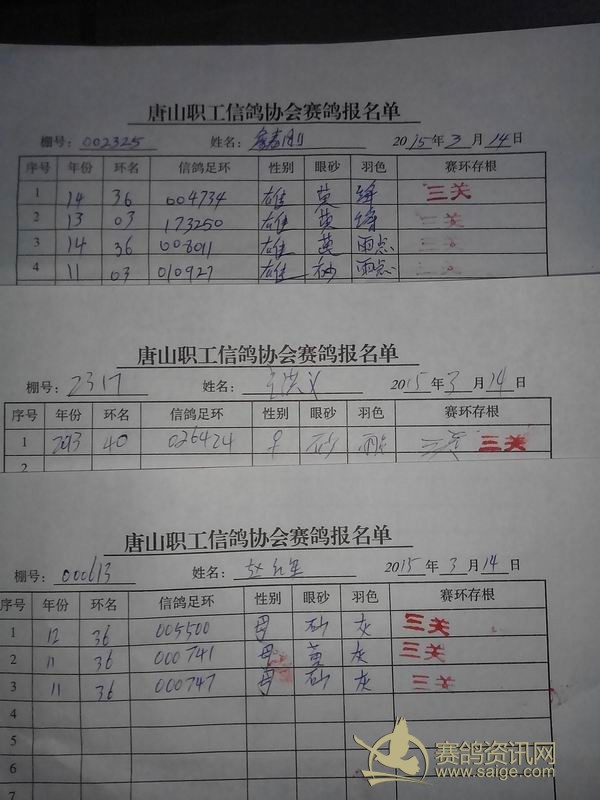 唐山职工信鸽协会赛鸽报名单
棚号: 002325 姓名: 2015年3月14日
序号 年份 环名 信鸽足环 性别 眼砂 羽色 赛环存根
1 14 36 004734 雄 黄 绛 三关
2 13 03 173250 雄 黄 绛 三关
3 14 36 008011 雄 黄 雨点 三关
4 11 03 010927 雄 砂 雨点 三关
唐山职工信鸽协会赛鸽报名单
棚号: 2317 姓名: 2015年3月14日
序号 年份 环名 信鸽足环 性别 眼砂 羽色 赛环存根
1 2013 40 026424 ♀ 砂 雨点 三关 三关
2
唐山职工信鸽协会赛鸽报名单
棚号: 000613 姓名: 2015年3月14日
序号 年份 环名 信鸽足环 性别 眼砂 羽色 赛环存根
1 12 36 005500 母 砂 灰 三关
2 11 36 000741 母 黄 灰 三关
3 11 36 000747 母 砂 灰 三关
4
5
6
7
赛鸽资讯网
www.saige.com